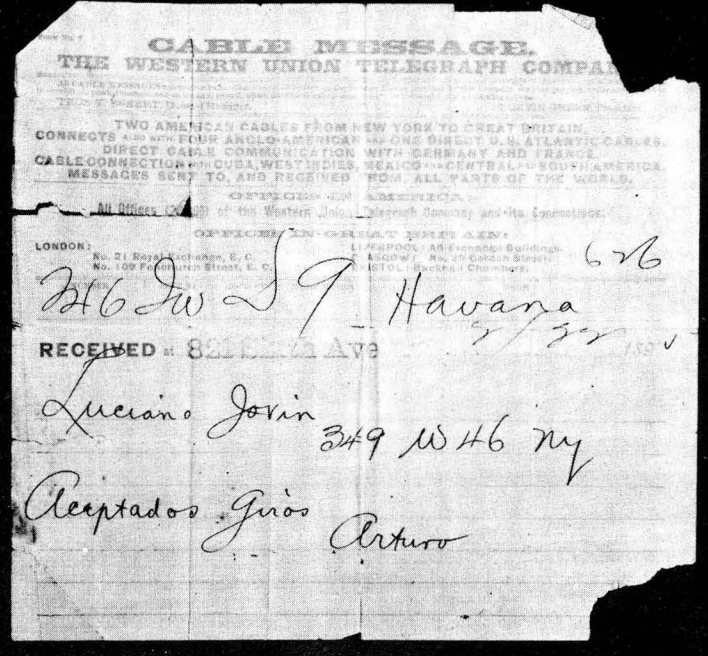 CABLE MESSAGE.
THE WESTERN UNION TELEGRAPH COMPA
TWO AMERICAN CABLES FROM NEW YORK TO GREAT BRITAIN.
CONNECTS ALSO WITH FOUR ANGLO-AMERICAN AND ONE DIRECT U.S. ATLANTIC CABLES.
DIRECT CABLE COMMUNICATION WITH GERMANY AND FRANCE.
CABLE CONNECTION WITH CUBA, WEST INDIES, MEXICO AND CENTRAL AND SOUTH AMERICA.
MESSAGES SENT TO, AND RECEIVED FROM, ALL PARTS OF THE WORLD.
OFFICES IN AMERICA:
All Offices of the Western Union Telegraph Company and its Connections.
OFFICES IN GREAT BRITAIN:
LONDON:
No. 21 Royal Exchange, E. C.
No. 109 Fenchurch Street, E. C.
LIVERPOOL: A8 Exchange Buildings.
GLASGOW: No. 29 Gordon Street.
BRISTOL: Backhall Chambers.
626
9 Havana
RECEIVED at 821 Ave 189
Luciano Jovin
349 W 46 Ny
Aceptados Giros
Arturo